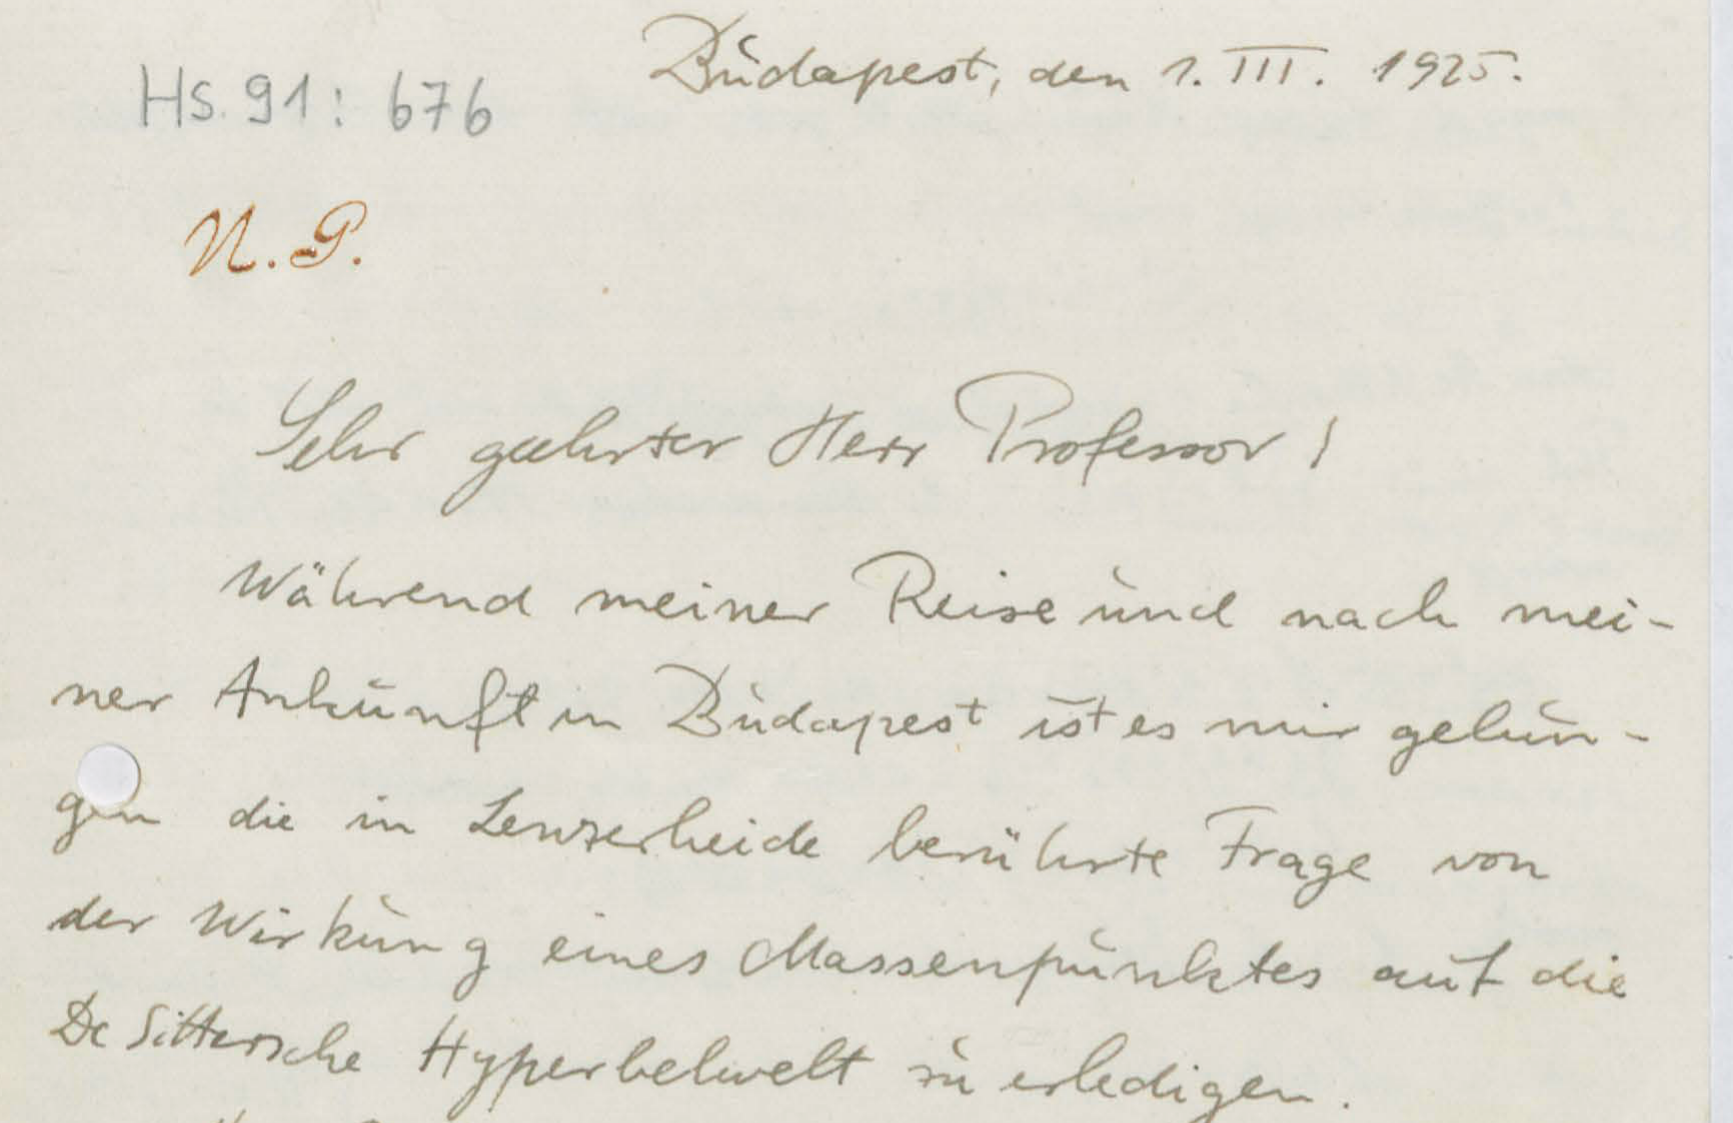 Budapest, den 1. III. 1925.
Hs. 91: 676
N. P.
Sehr geehrter Herr Professor!
Während meiner Reise und nach mei-
ner Ankunft in Budapest ist es mir gelun-
gen die in Lenzerheide berührte Frage von
der Wirkung eines Massenpunktes auf die
De Sittersche Hyperbelwelt zu erledigen.